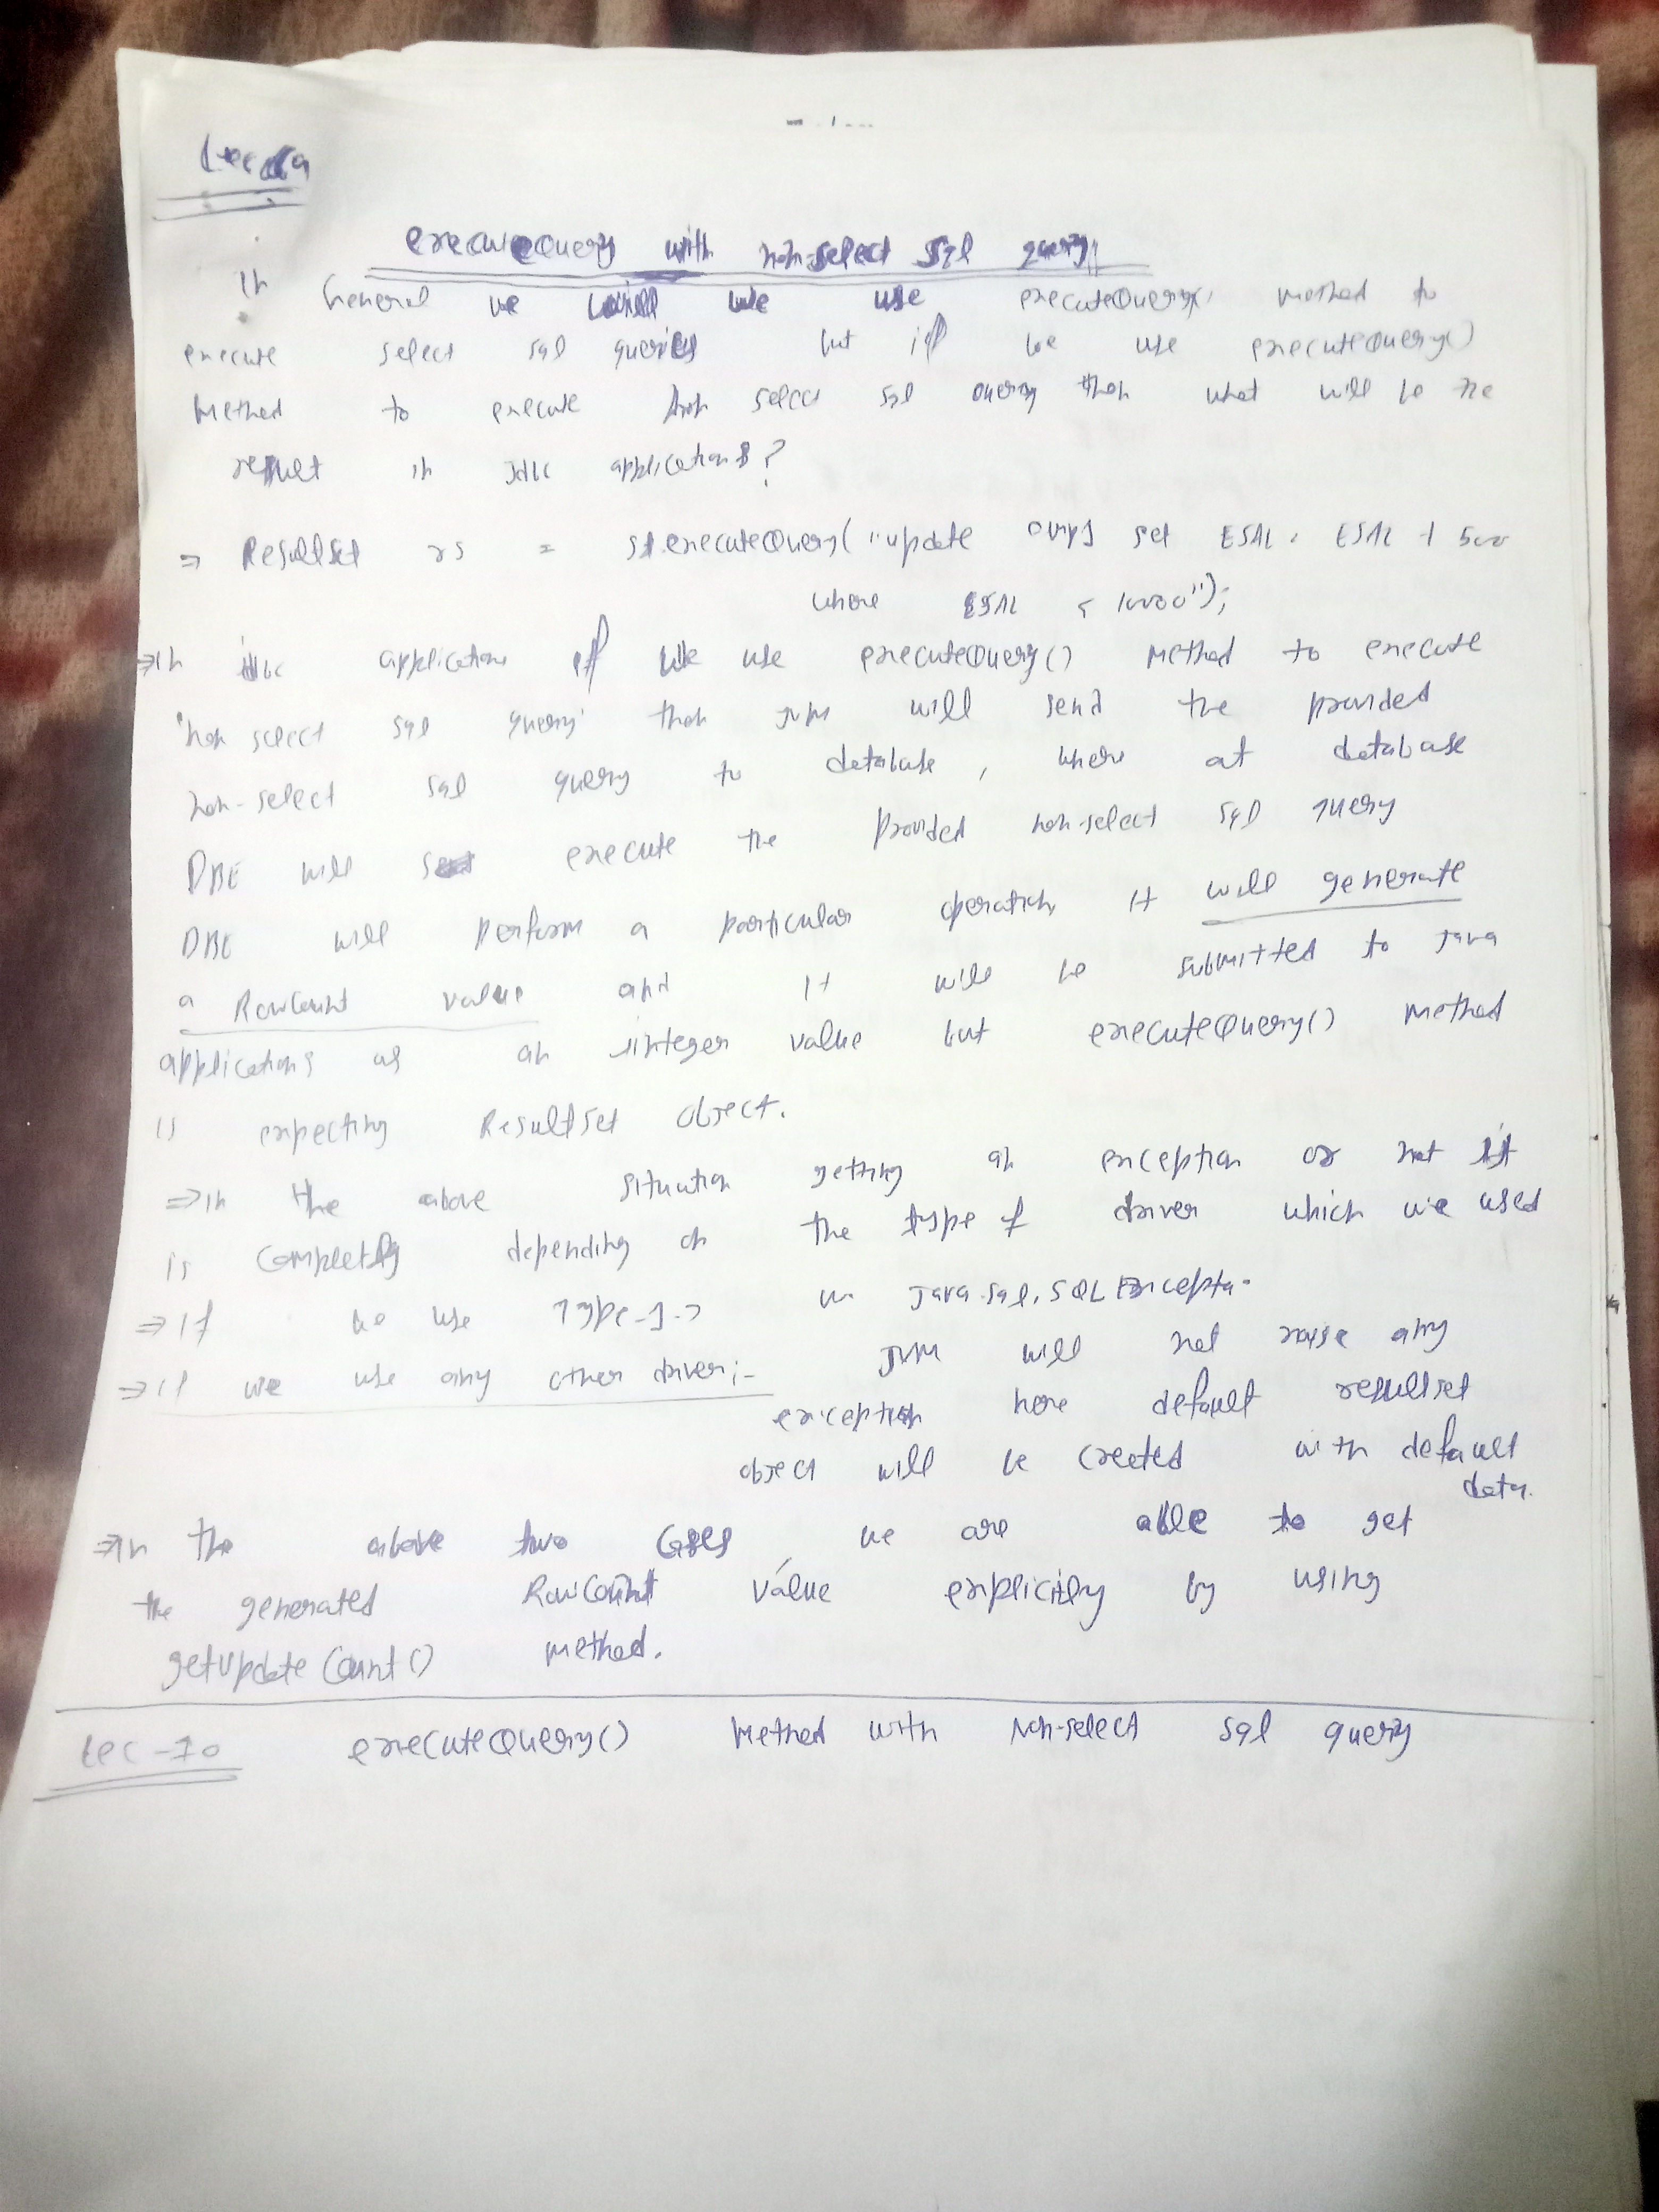 Lec 9
executeQuery with non-select sql query
In General we will we use executeQuery() method to
execute select sql queries but if we use executeQuery()
Method to execute Non select sql query then what will be the
result in Jdbc applications?
⇒ ResultSet rs = st.executeQuery("update emp1 set ESAL = ESAL + 500
where ESAL < 10000");
⇒In Jdbc applications if we use executeQuery() Method to execute
'non select sql query' then JVM will send the provided
non-select sql query to database, where at database
DBE will execute the provided non-select sql query
DBE will perform a particular operation it will generate
a RowCount value and it will be submitted to Java
applications as an integer value but executeQuery() Method
is expecting ResultSet object.
⇒In the above situation getting an exception or not it
is completely depending on the type of driver which we used
⇒If we use Type-1-> Java.sql.SQLException
⇒If we use any other driver:- JVM will not raise any
exception here default resultset
object will be created with default
data.
⇒In the above two cases we are able to get
the generated RowCount value explicitly by using
getUpdateCount() method.
Lec-10 executeQuery() Method with Non-select sql query